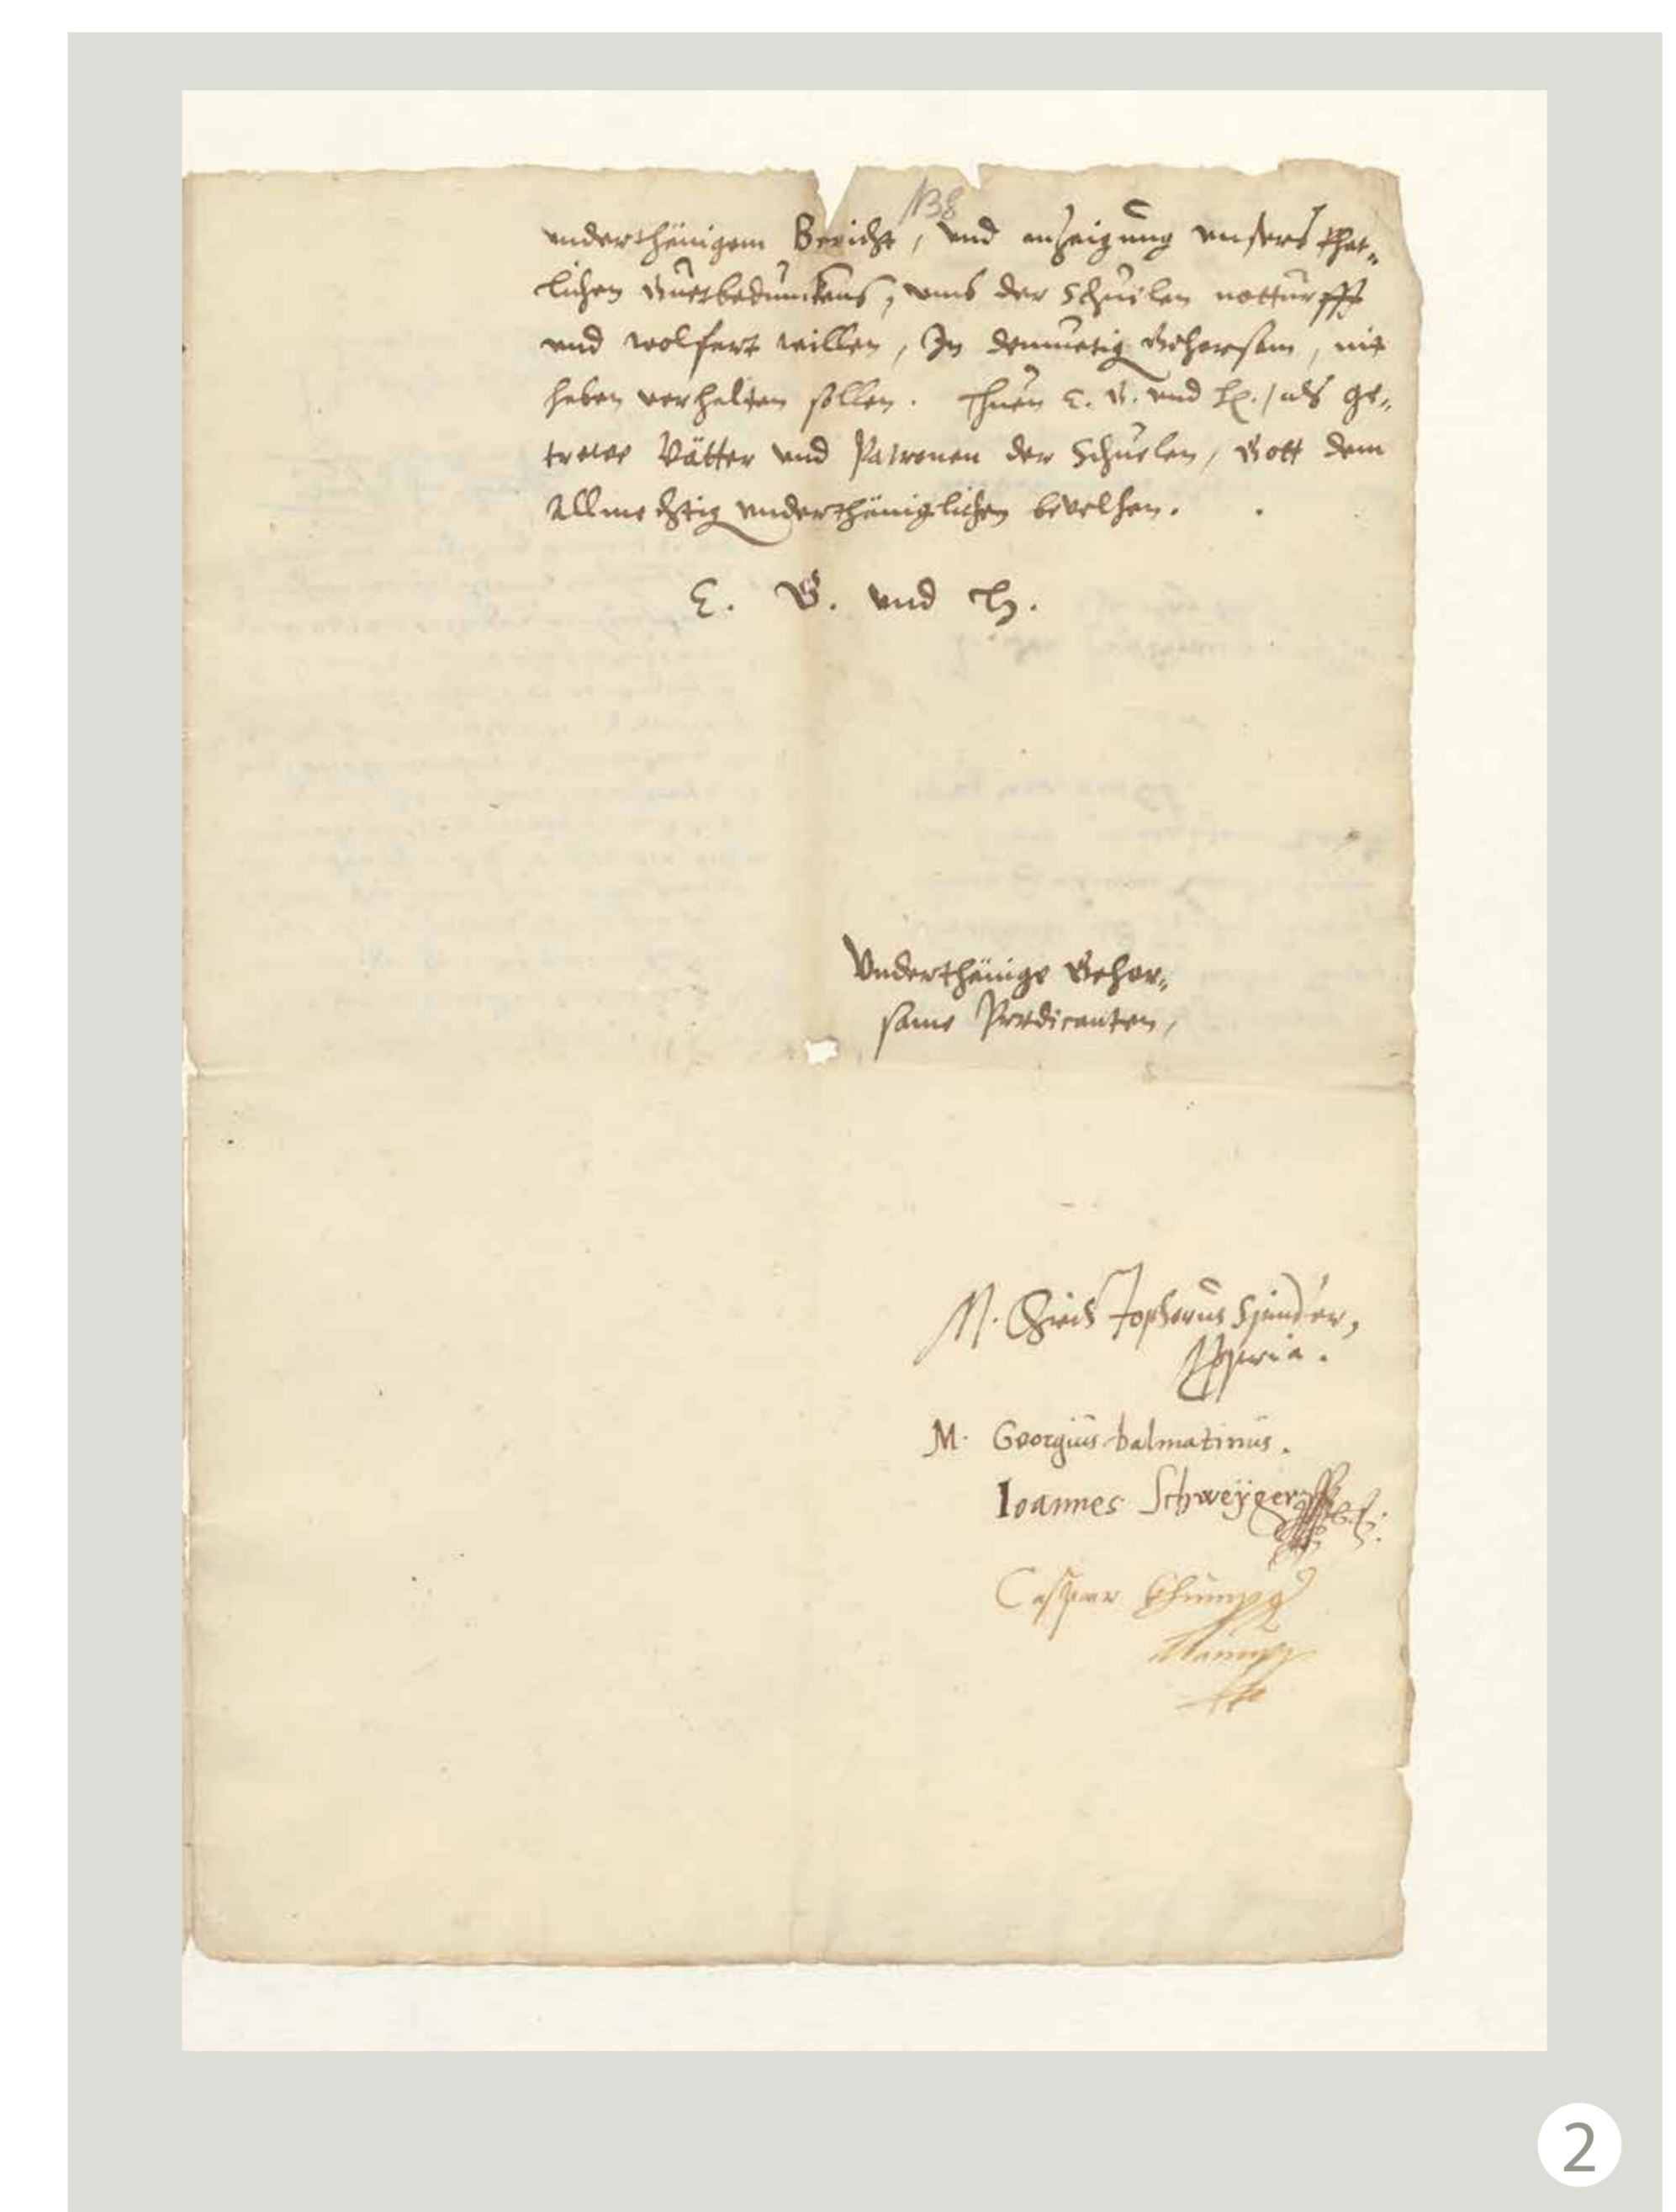 138
underthänigem Bericht, und anzeigung unsers
lichen Guetbedunckens, umb der Schuelen notturfft
und wolfart willen, In demuetig Gehorsam, nit
haben verhalten sollen. Thuen E. G. und H. / als ge„
trewe Vätter und Patronen der Schuelen, Gott dem
Allmechtig underthäniglichen bevelhen.
E. G. und H.
Underthänige Gehor„
same Predicanten,
M. Christophorus Spindler,
M. Georgius Dalmatinus.
Ioannes Schweÿger
Caspar
2